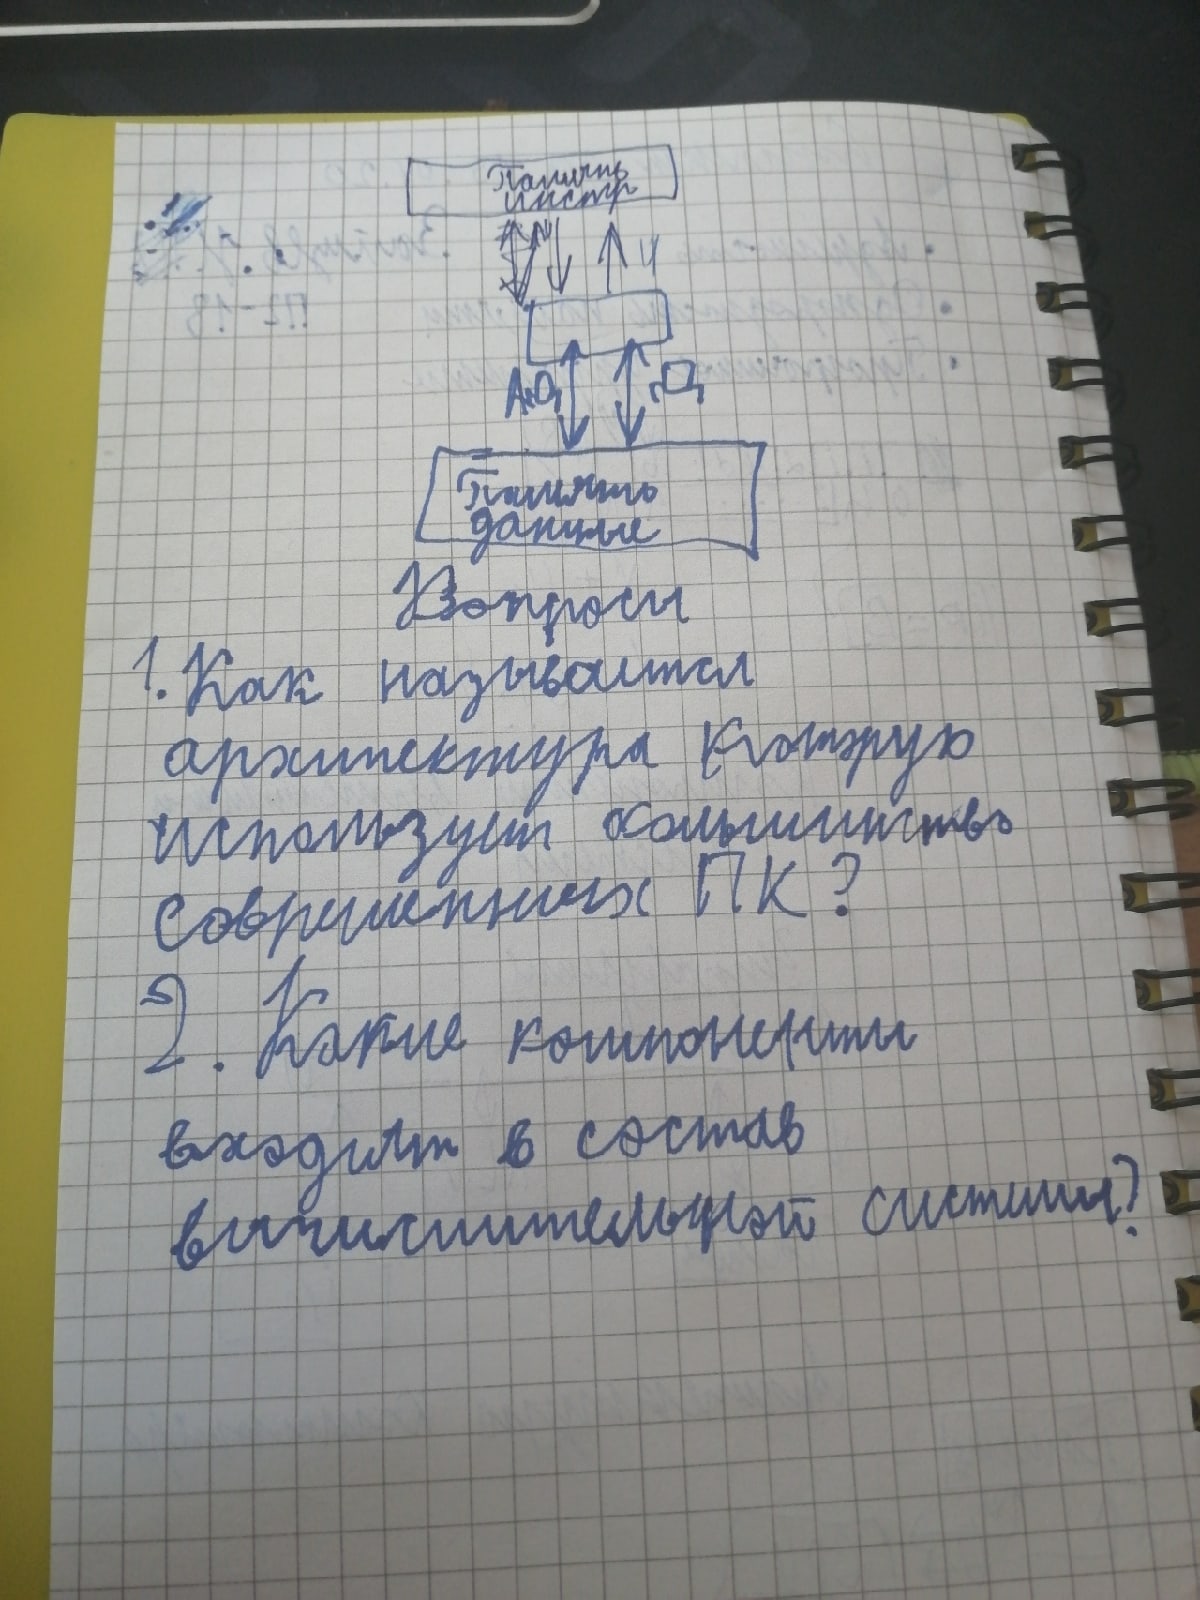 Память
инстр
И
А,Д
Д
Память
данные
Вопросы
1. Как называется
архитектура которую
использует большинство
современных ПК?
2. Какие компоненты
входят в состав
вычислительной системы?